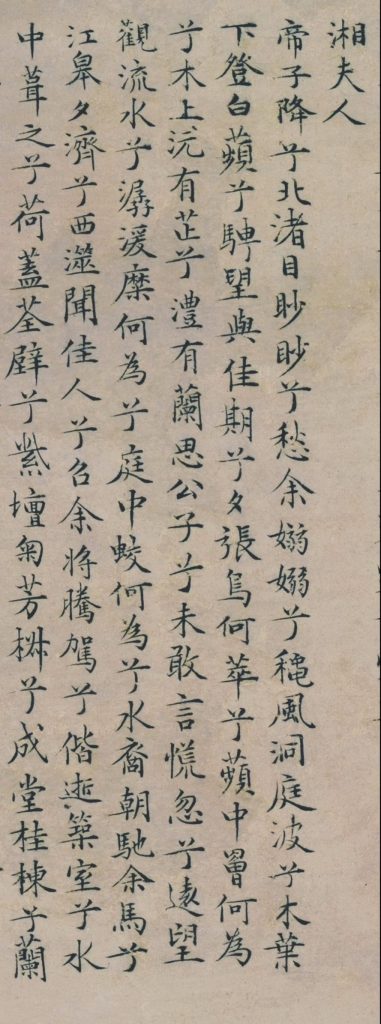 湘夫人
帝子降兮北渚目眇眇兮愁余嫋嫋兮穐風洞庭波兮木葉
下登白蘋兮騁望與佳期兮夕張鳥何萃兮蘋中罾何為
兮木上沅有芷兮澧有蘭思公子兮未敢言慌忽兮遠望
觀流水兮潺湲麋何為兮庭中蛟何為兮水裔朝馳余馬兮
江皋夕濟兮西澨聞佳人兮召余將騰駕兮偕逝築室兮水
中葺之兮荷蓋荃壁兮紫壇匊芳椒兮成堂桂棟兮蘭